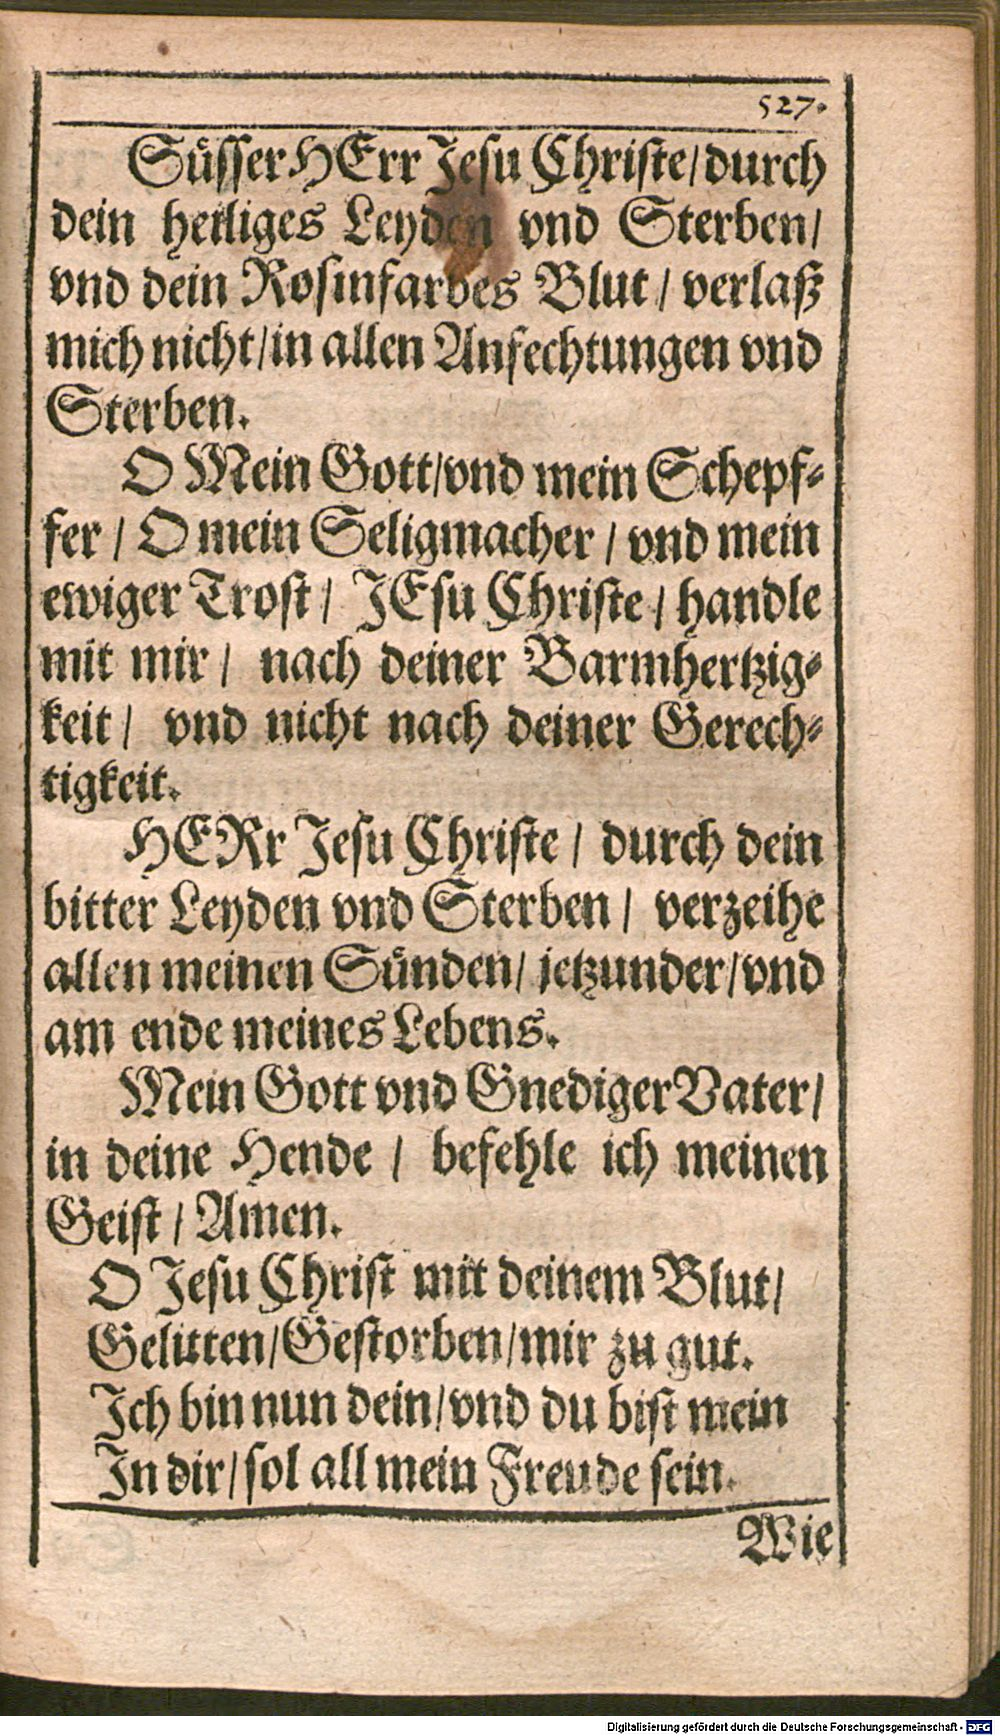 527.
Süsser HErr Jesu Christe/durch
dein heiliges Leyden vnd Sterben/
vnd dein Rosinfarbes Blut / verlaß
mich nicht/in allen Anfechtungen vnd
Sterben.
O Mein Gott/vnd mein Schepf-
fer / O mein Seligmacher / vnd mein
ewiger Trost / JEsu Christe / handle
mit mir / nach deiner Barmhertzig-
keit / vnd nicht nach deiner Gerech-
tigkeit.
HERr Jesu Christe / durch dein
bitter Leyden vnd Sterben / verzeihe
allen meinen Sünden/ jetzunder/vnd
am ende meines Lebens.
Mein Gott vnd Gnediger Vater/
in deine Hende / befehle ich meinen
Geist / Amen.
O Jesu Christ mit deinem Blut/
Gelitten/Gestorben/mir zu gut.
Ich bin nun dein/vnd du bist mein
In dir/sol all mein Freude sein.
Wie
Digitalisierung gefördert durch die Deutsche Forschungsgemeinschaft - DFG